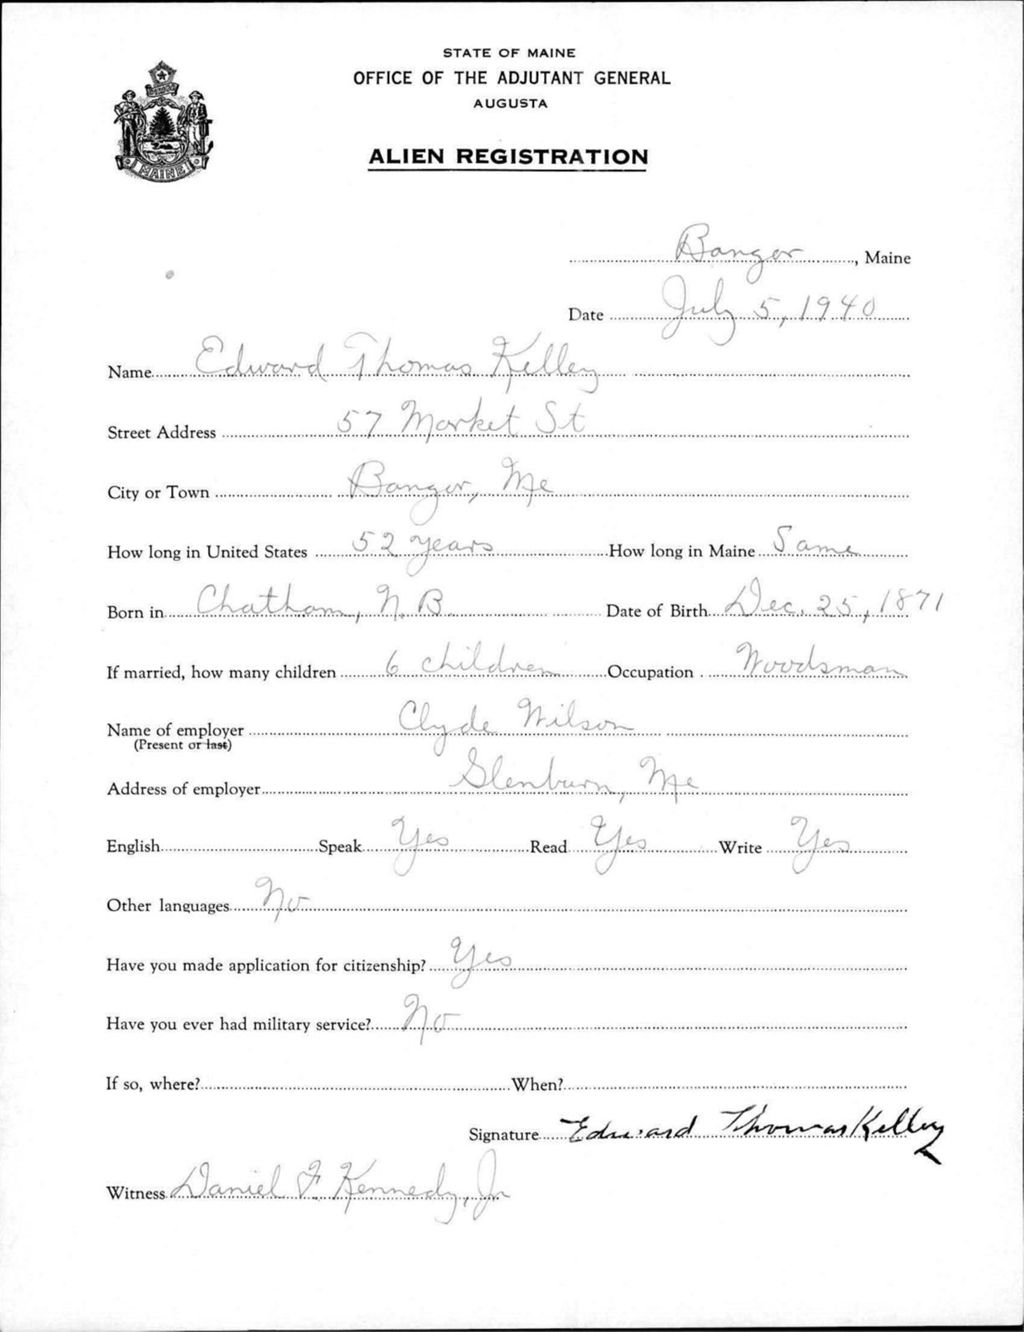 STATE OF MAINE
OFFICE OF THE ADJUTANT GENERAL
AUGUSTA
ALIEN REGISTRATION
MAINE
Bangor, Maine
Date July 5, 1940
Name Edward Thomas Kelley
Street Address 57 Market St
City or Town Bangor, Me
How long in United States 52 years How long in Maine Same
Born in Chatham, N.B. Date of Birth Dec. 25, 1871
If married, how many children 6 children Occupation Woodsman
Name of employer Clyde Wilson
(Present or last)
Address of employer Glenburn, Me
English Speak Yes Read Yes Write Yes
Other languages No
Have you made application for citizenship? Yes
Have you ever had military service? No
If so, where? When?
Signature Edward Thomas Kelley
Witness Daniel F. Kennedy, Jr